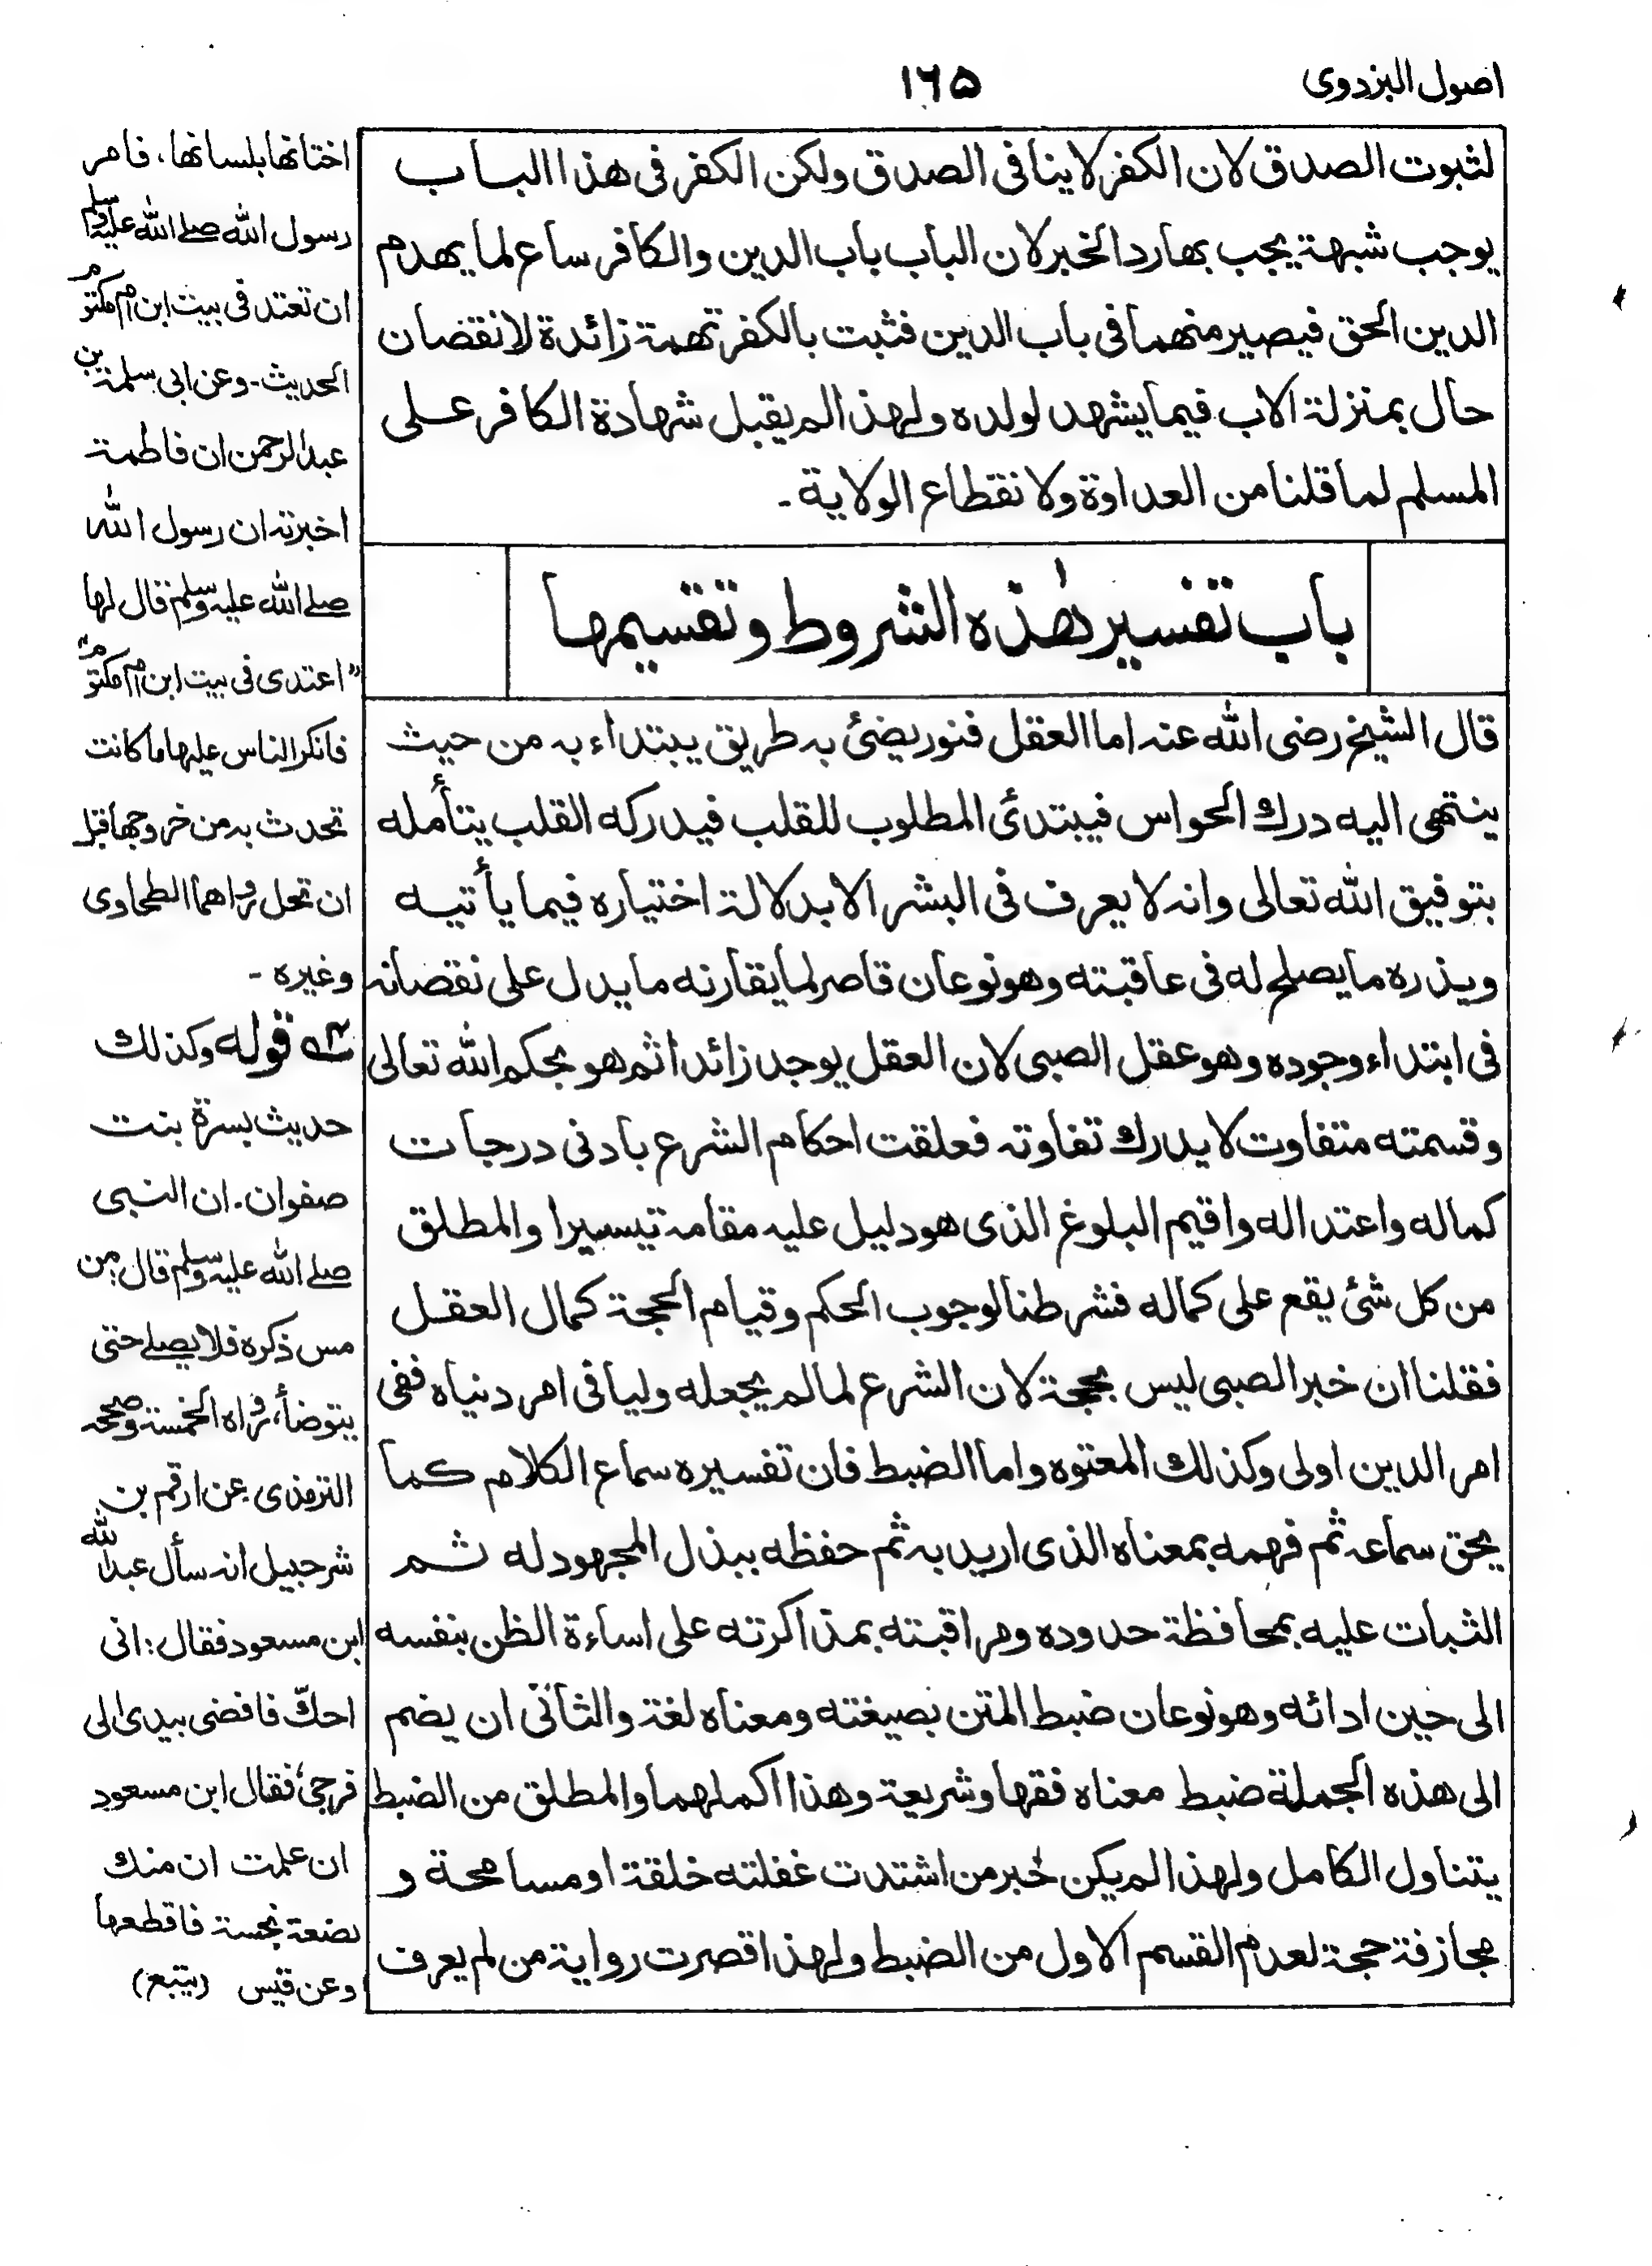 اصول البزدوی
١٦۵
لثبوت الصدق لان الکفر لاینافی الصدق ولکن الکفر فی هذا الباب
یوجب شبهة یجب بها رد الخبر لان الباب باب الدین والکافر ساع لما یهدم
الدین الحق فیصیر متهما فی باب الدین فثبت بالکفر تهمة زائدة لا نقصان
حال بمنزلة الاب فیما یشهد لولده ولهذا لم یقبل شهادة الکافر علی
المسلم لما قلنا من العداوة ولا نقطاع الولایة۔
باب تفسیر هٰذه الشروط وتقسیمها
قال الشیخ رضی الله عنه اما العقل فنور یضئ به طریق یبتداء به من حیث
ینتهی الیه درك الحواس فیبتدئ المطلوب للقلب فیدرکه القلب یتأمله
بتوفیق الله تعالی وانه لا یعرف فی البشر الا بدلالة اختیاره فیما یأتیه
ویذره ما یصلح له فی عاقبته وهو نوعان قاصر لما یقارنه ما یدل علی نقصانه
فی ابتداء وجوده وهو عقل الصبی لان العقل یوجد زائدا ثم هو بحکم الله تعالی
وقسمته متفاوت لا یدرك تفاوته فعلقت احکام الشرع بادنی درجات
کماله واعتداله واقیم البلوغ الذی هو دلیل علیه مقامه تیسیرا والمطلق
من کل شئ یقع علی کماله فشرطنا لوجوب الحکم وقیام الحجة کمال العقل
فقلنا ان خبر الصبی لیس بحجة لان الشرع لما لم یجعله ولیا فی امر دنیاه ففی
امر الدین اولی وکذلك المعتوه واما الضبط فان تفسیره سماع الکلام کما
یحق سماعه ثم فهمه بمعناه الذی ارید به ثم حفظه ببذل المجهود له ثم
الثبات علیه بمحافظة حدوده ومراقبته بمذاکرته علی اساءة الظن بنفسه
الی حین ادائه وهو نوعان ضبط المتن بصیغته ومعناه لغة والثانی ان یضم
الی هذه الجملة ضبط معناه فقها وشریعة وهذا اکملهما والمطلق من الضبط
یتناول الکامل ولهذا لم یکن خبر من اشتدت غفلته خلقة او مسامحة و
مجازفة حجة لعدم القسم الاول من الضبط ولهذا قصرت روایة من لم یعرف
اختانها بلسانها، فامر
رسول الله صلے الله علیہ وسلم
ان تعتد فی بیت ابن ام مکتوم
الحدیث۔ وعن ابی سلمة بن
عبد الرحمن ان فاطمة
اخبرته ان رسول الله
صلے الله علیہ وسلم قال لها
"اعتدی فی بیت ابن ام مکتوم"
فانکر الناس علیها ما کانت
تحدث به من خروجها قبل
ان تحل رواهما الطحاوی
وغیره۔
قوله وکذلك
حدیث بسرة بنت
صفوان۔ ان النبی
صلے الله علیہ وسلم قال: من
مس ذکره فلا یصلے حتی
یتوضأ، رواه الخمسة وصححه
الترمذی۔ عن ارقم بن
شرحبیل انه سأل عبد الله
ابن مسعود فقال: انی
احكّ فافضی بیدی الی
فرجی؟ فقال ابن مسعود
ان علمت ان منك
بضعة نجسة فاقطعها
وعن قیس (یتبع)